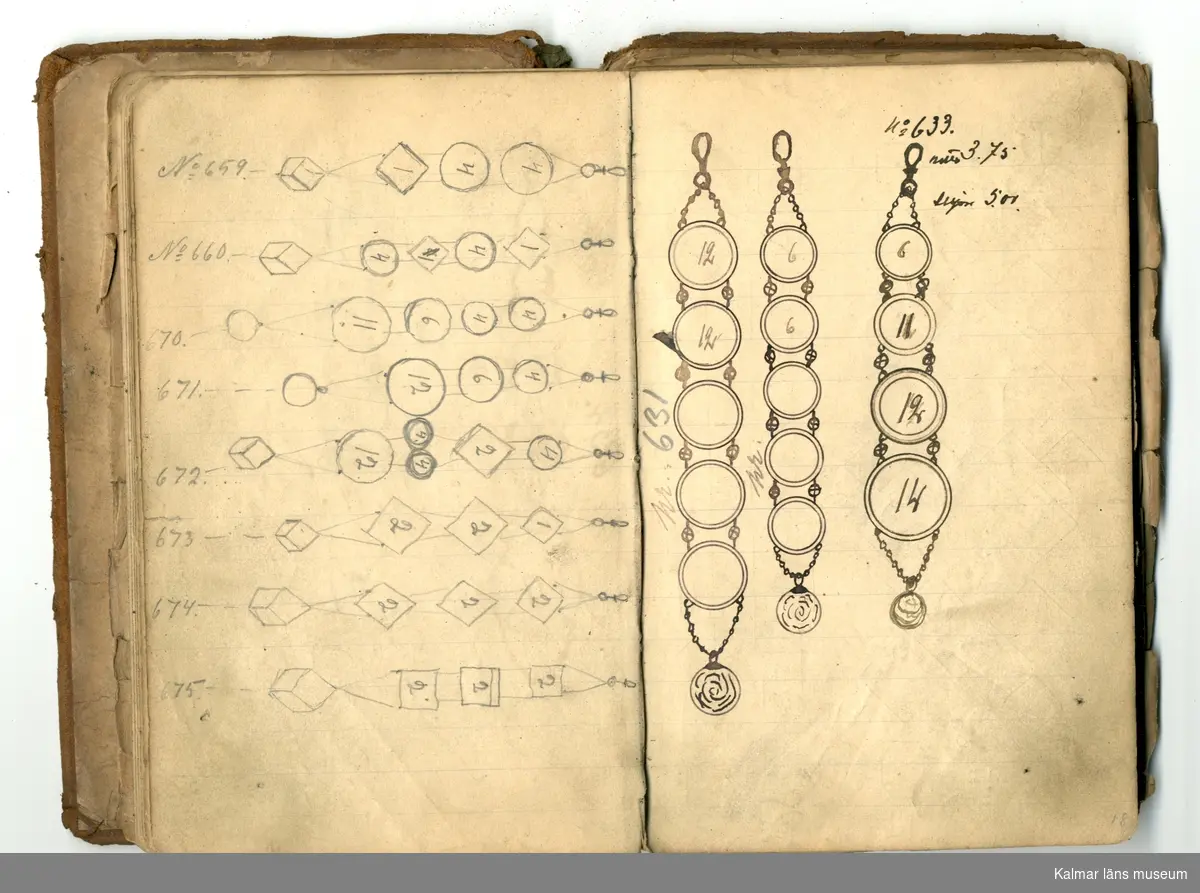 No 659.
1 4 4
No 660.
4 14 4 1
670.
11 6 4 4
671.
12 6 4
672.
12 4 4 2 4
673
2 2 1
674
2 2 2
675.
2 2 2
Nr. 631
12
12
Nr.
6
6
No 633.
3.75
5.00.
6
11
12
14
18
Kalmar läns museum